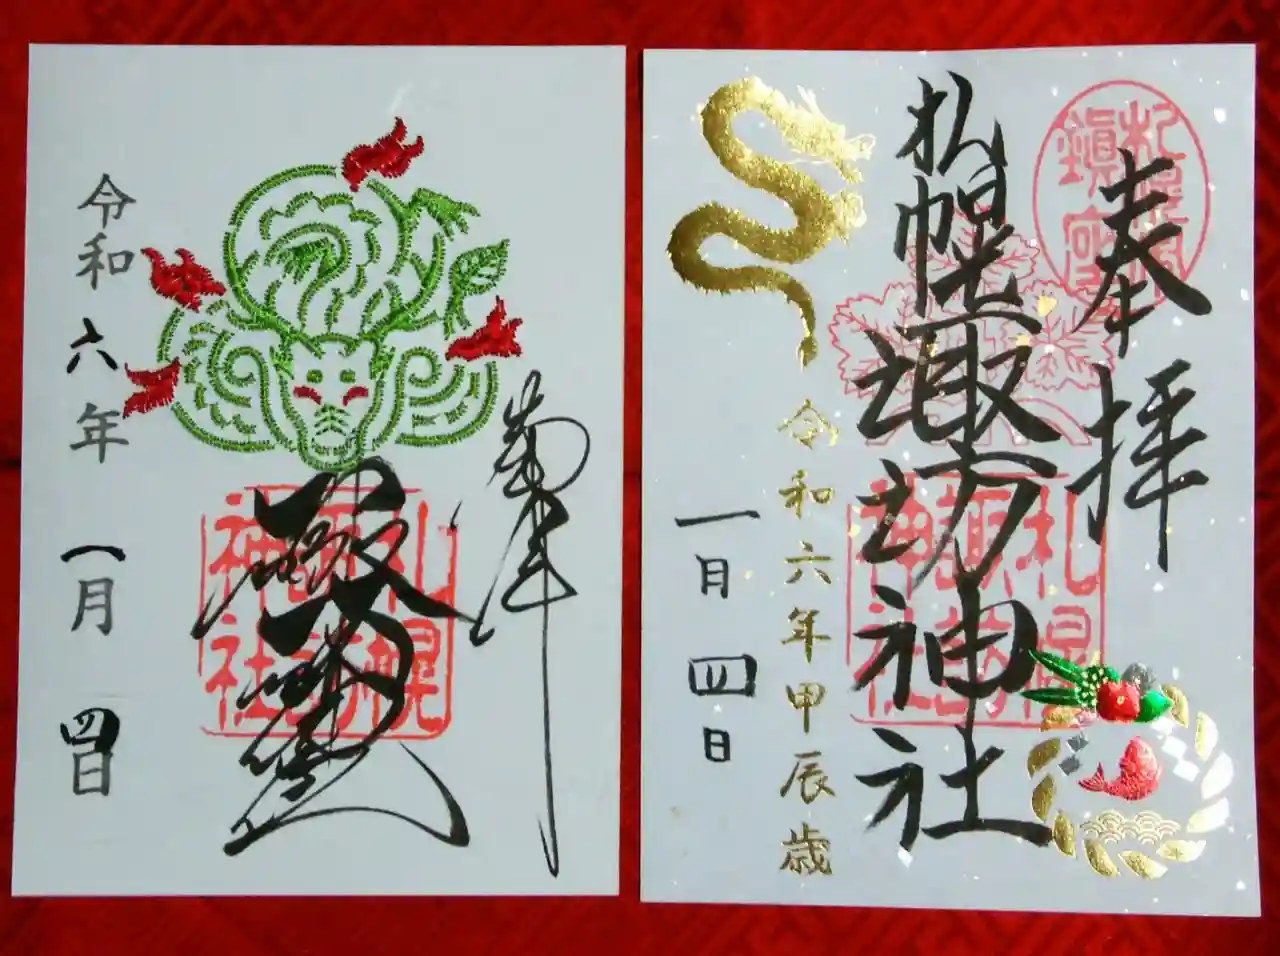 奉拝
札幌
諏訪
神社
令和六年 一月 四日
奉拝
札幌諏訪神社
札幌
諏訪
神社
令和六年甲辰歳
一月四日